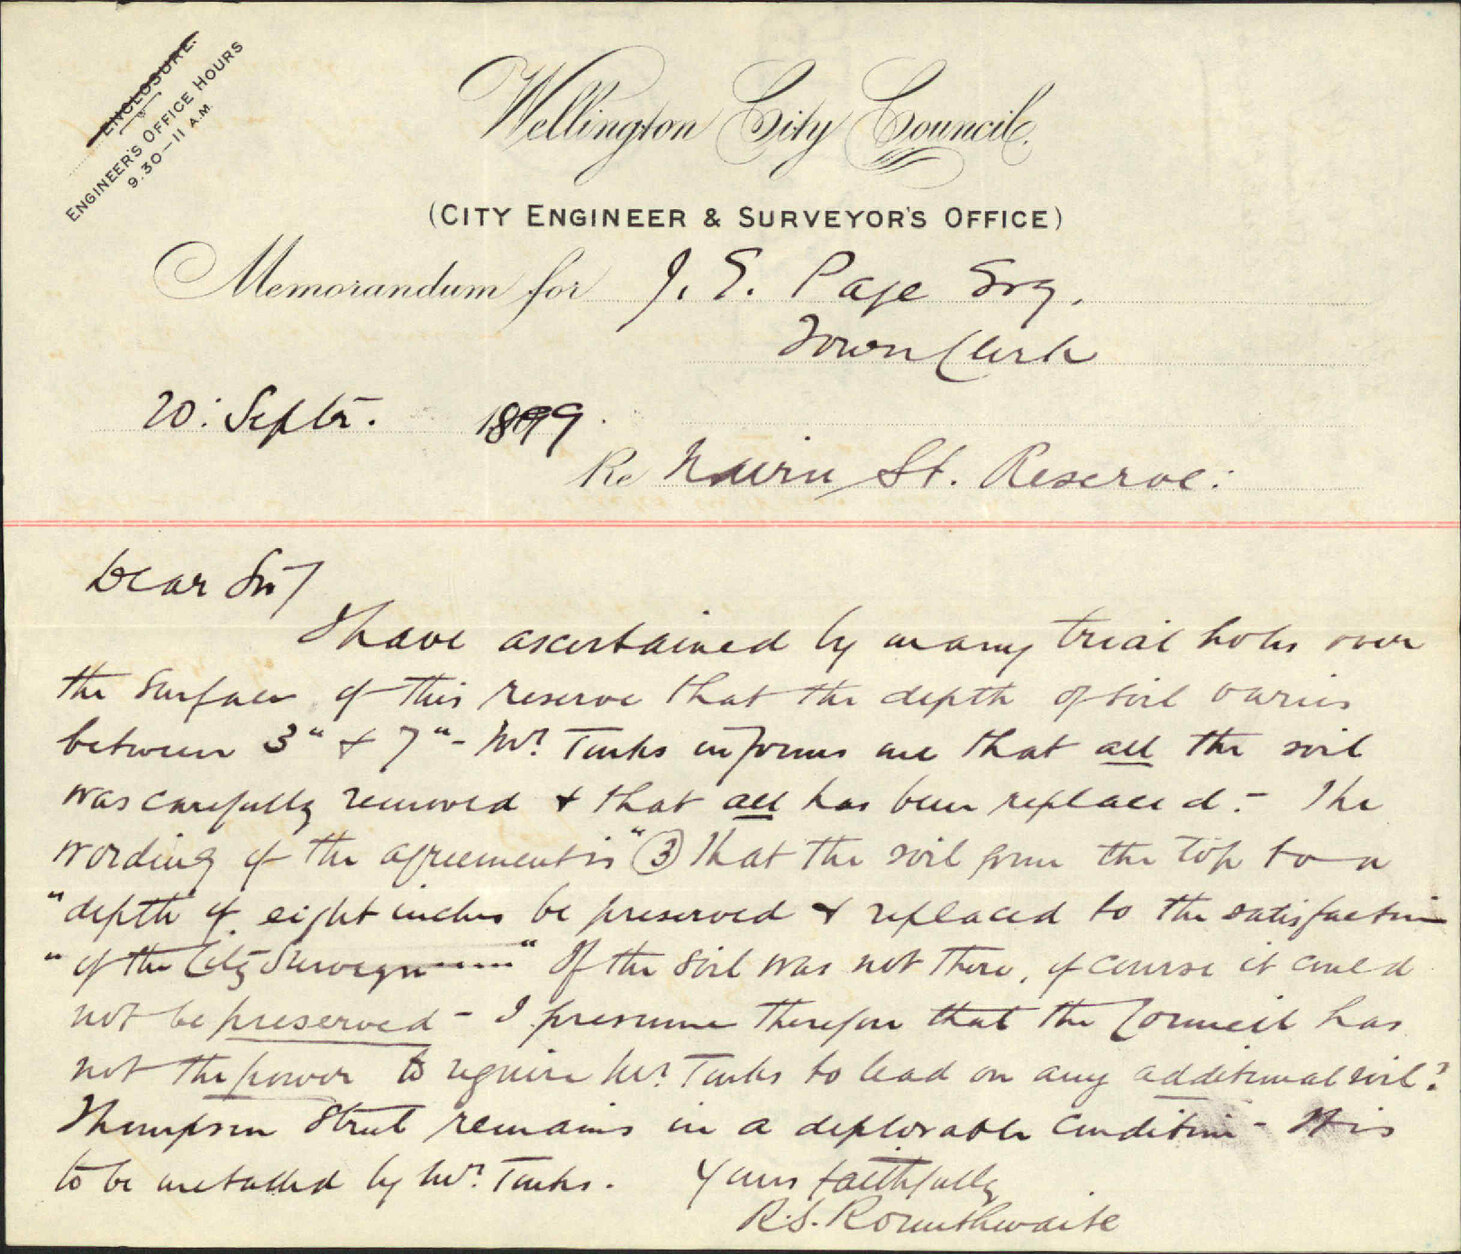 ENCLOSURE.
ENGINEER'S OFFICE HOURS
9.30–11 A.M.
Wellington City Council.
(CITY ENGINEER & SURVEYOR'S OFFICE)
Memorandum for J. E. Page Esq.
Town Clerk
20: Septr. 1899.
Re Nairn St. Reserve:
Dear Sir/
I have ascertained by many trial holes over
the surface of this reserve that the depth of soil varies
between 3" & 7" - Mr. Tonks informs me that all the soil
was carefully removed & that all has been replaced. - The
wording of the agreement is "(3) That the soil from the top to a
"depth of eight inches be preserved & replaced to the satisfaction
"of the City Surveyor" If the soil was not there, of course it could
not be preserved - I presume therefore that the Council has
not the power to require Mr. Tonks to lead on any additional soil?
Thompson Street remains in a deplorable condition - It is
to be metalled by Mr. Tonks. Yours faithfully
R.S. Rounthwaite